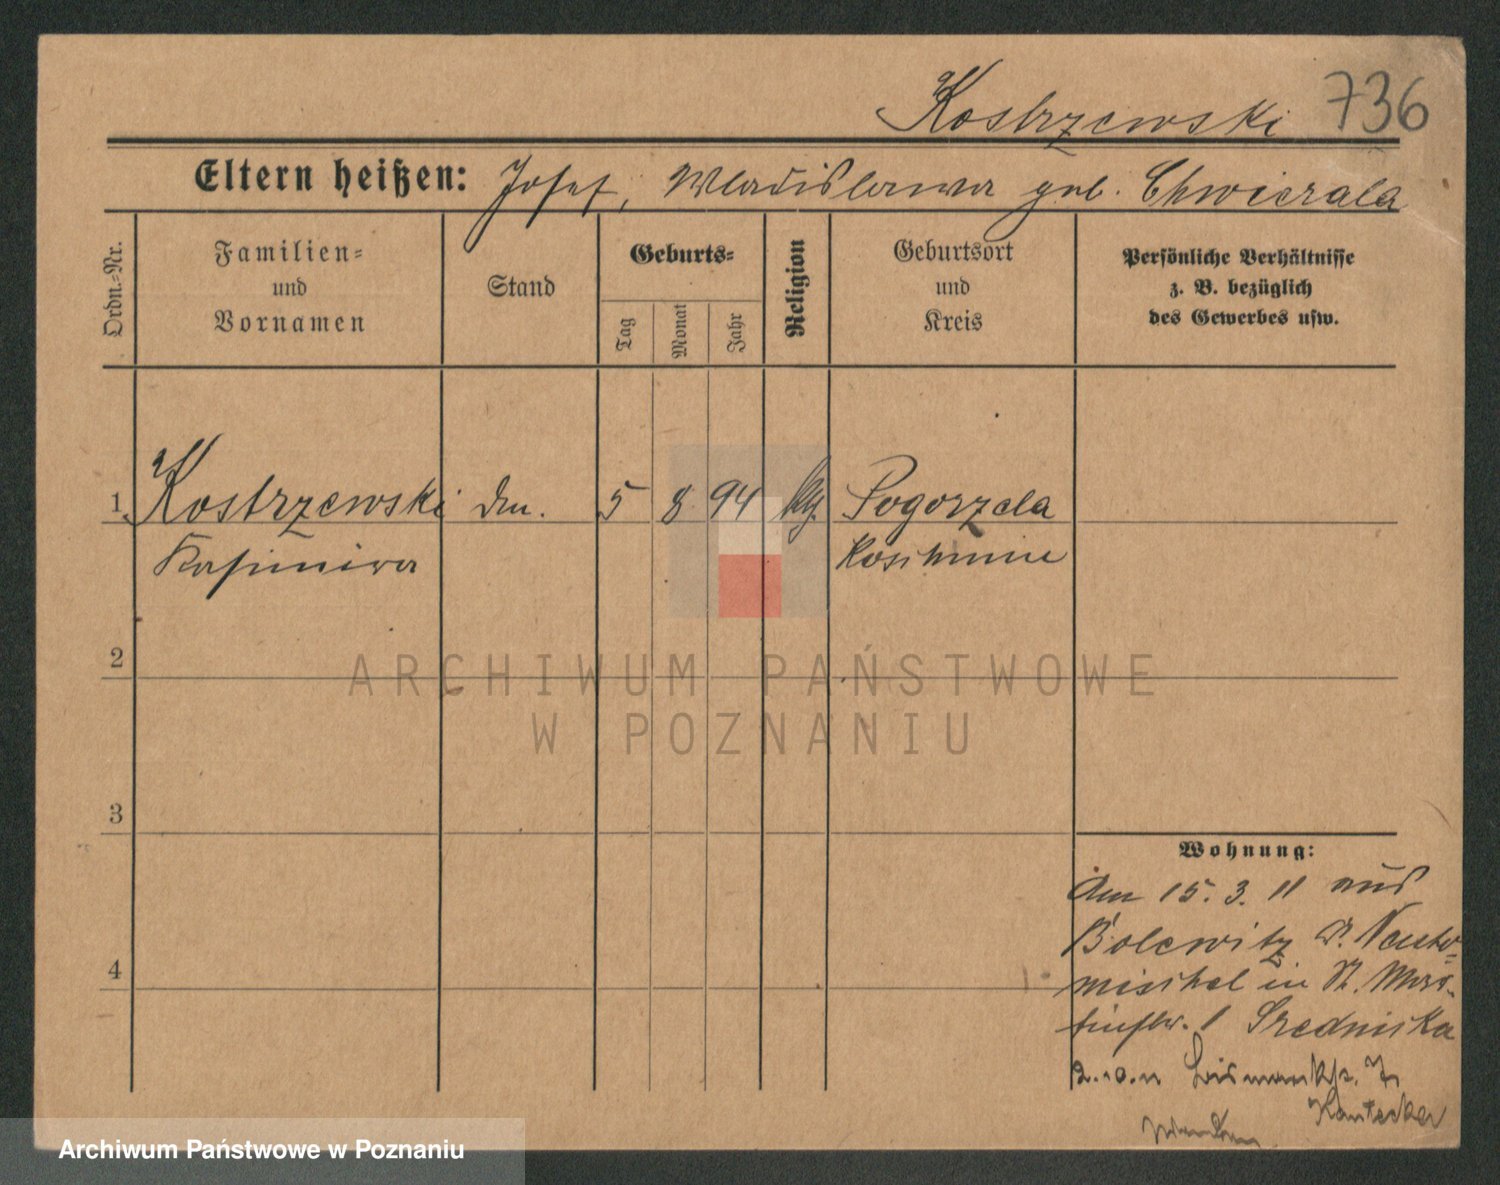 Kostrzewski 736
Eltern heißen: Josef, Wladislawa geb. Chwierala
Ordn.-Nr.
Familien-
und
Vornamen
Stand
Geburts-
Tag
Monat
Jahr
Religion
Geburtsort
und
Kreis
Persönliche Verhältnisse
z. B. bezüglich
des Gewerbes usw.
1 Kostrzewski 5 8 94 Pogorzela
Kasimira Koschmin
2
3
4
ARCHIWUM PAŃSTWOWE
W POZNANIU
Wohnung:
Am 15. 3. 11 aus
Bolewitz Neuto-
mischel in St. Mar-
tinstr. 1 Sredniska
2.10.11 Bismarckstr. 7
Archiwum Państwowe w Poznaniu